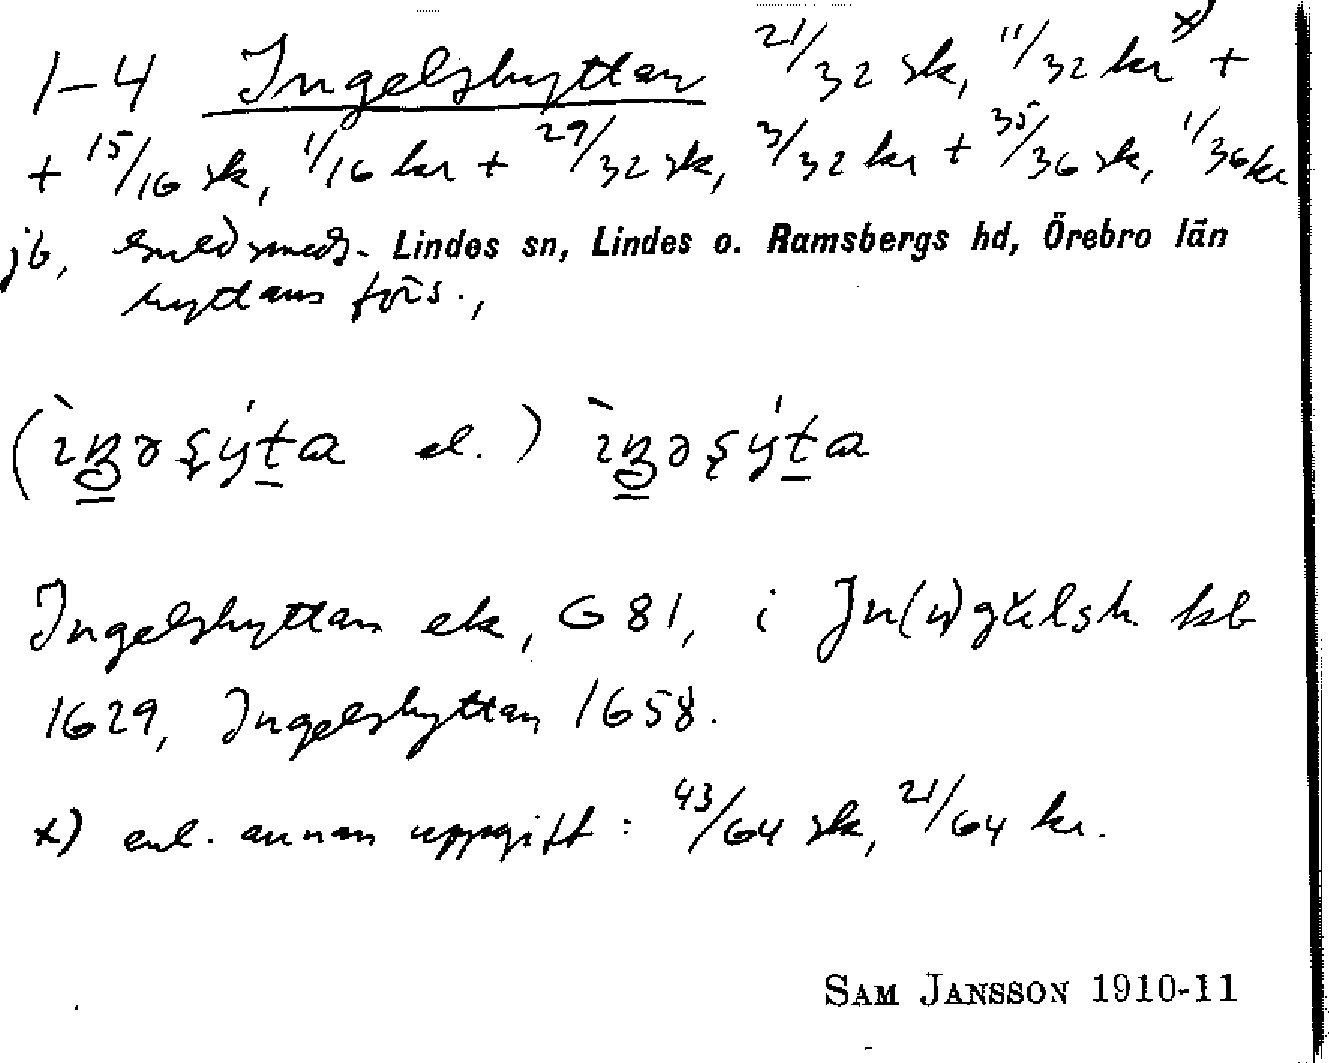 1-4 Ingelshyttan 21/32 sk, 11/32 kr x) +
+ 15/16 sk, 1/16 kr + 29/32 sk, 3/32 kr + 35/36 sk, 1/36 kr
jb, Guldsmeds- Lindes sn, Lindes o. Ramsbergs hd, Örebro län
hyttans förs.,
el.)
Ingelshyttan ek, G 81, i Jn(n)gĕlsh kb
1629, Ingelshyttan 1658.
x) enl. annan uppgift: 43/64 sk, 21/64 kr.
SAM JANSSON 1910-11